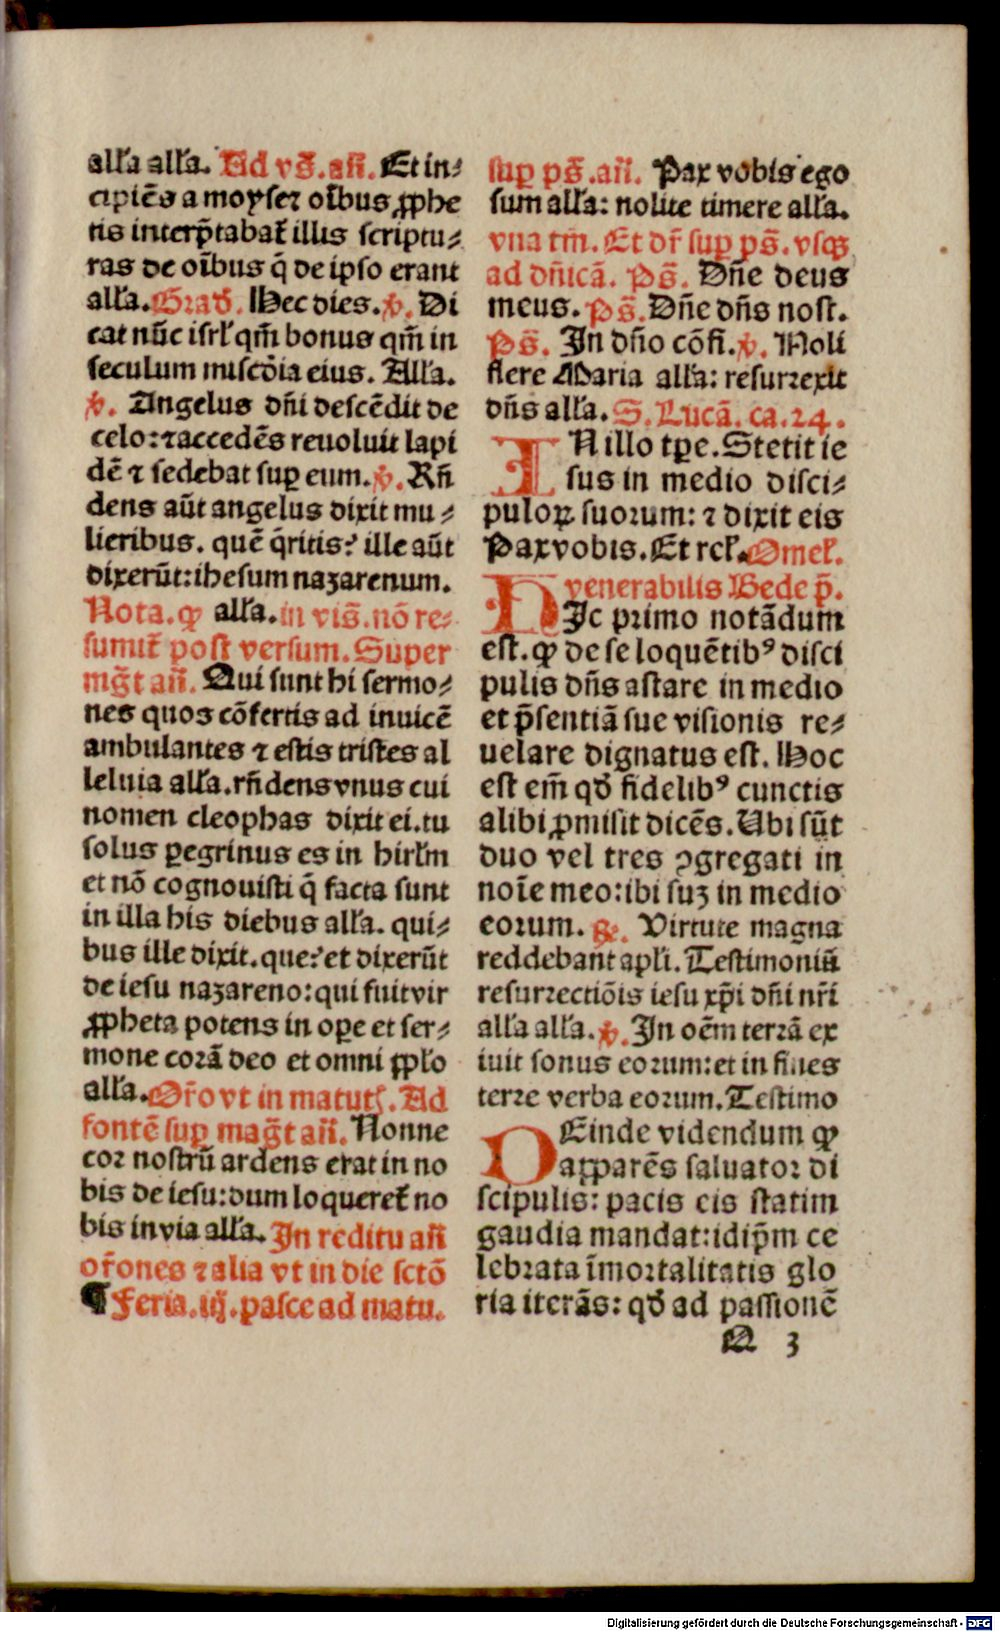 alła alła. Ad vs̄. an̄. Et in⸗
cipiēs a moyse ⁊ oībus ꝓphe
tis interp̄tabat᷑ illis scriptu⸗
ras de oībus q̄ de ipso erant
alła. Grad̄. Hec dies. ℣. Di
cat nūc isrł qm̄ bonus qm̄ in
seculum miscōia eius. Alła.
℣. Angelus dn̄i descēdit de
celo: ⁊ accedēs reuoluit lapi
dē ⁊ sedebat suꝑ eum. ℣. Rn̄
dens aūt angelus dixit mu⸗
lieribus. quē q̄ritis? ille aūt
dixerūt: ihesum nazarenum.
Nota. ꝙ alła. in vis̄. nō re⸗
sumit᷑ post versum. Super
mg̃t an̄. Qui sunt hi sermo⸗
nes quos cōfertis ad inuicē
ambulantes ⁊ estis tristes al
leluia alła. rn̄dens vnus cui
nomen cleophas dixit ei. tu
solus ꝑegrinus es in hirłm
et nō cognouisti q̄ facta sunt
in illa his diebus alła. qui⸗
bus ille dixit. que? et dixerūt
de iesu nazareno: qui fuit vir
ꝓpheta potens in oꝑe et ser⸗
mone corā deo et omni ꝓpło
alła. Or̄o vt in matuť. Ad
fontē suꝑ mag̃t an̄. Nonne
cor nostrū ardens erat in no
bis de iesu: dum loqueret᷑ no
bis in via alła. In reditu an̄
or̄ones ⁊ alia vt in die sctō
¶ Feria. iij. pasce ad matu.
suꝑ ps̄. an̄. Pax vobis ego
sum alła: nolite timere alła.
vna tm̄. Et dr̄ suꝑ ps̄. vsqꝫ
ad dn̄icā. Ps̄. Dn̄e deus
meus. Ps̄. Dn̄e dn̄s nost.
Ps̄. In dn̄o cōfi. ℣. Noli
flere Maria alła: resurrexit
dn̄s alła. S. Lucā. ca. 24.
IN illo tꝑe. Stetit ie
sus in medio disci⸗
puloꝝ suorum: ⁊ dixit eis
Pax vobis. Et rcł. Omeł.
venerabilis Bede p̄.
HIc primo notādum
est. ꝙ de se loquētibꝰ disci
pulis dn̄s astare in medio
et p̄sentiā sue visionis re⸗
uelare dignatus est. Hoc
est em̄ qd̄ fidelibꝰ cunctis
alibi ꝓmisit dicēs. Ubi sūt
duo vel tres ꝯgregati in
noīe meo: ibi suꝫ in medio
eorum. ℟. Virtute magna
reddebant apłi. Testimoniū
resurrectiōis iesu xp̄i dn̄i nr̄i
alła alła. ℣. In oēm terrā ex
iuit sonus eorum: et in fines
terre verba eorum. Testimo
DEinde videndum ꝙ
apparēs saluator di
scipulis: pacis eis statim
gaudia mandat: idip̄m ce
lebrata īmortalitatis glo
ria iterās: qd̄ ad passionē
Q 3
Digitalisierung gefördert durch die Deutsche Forschungsgemeinschaft - DFG